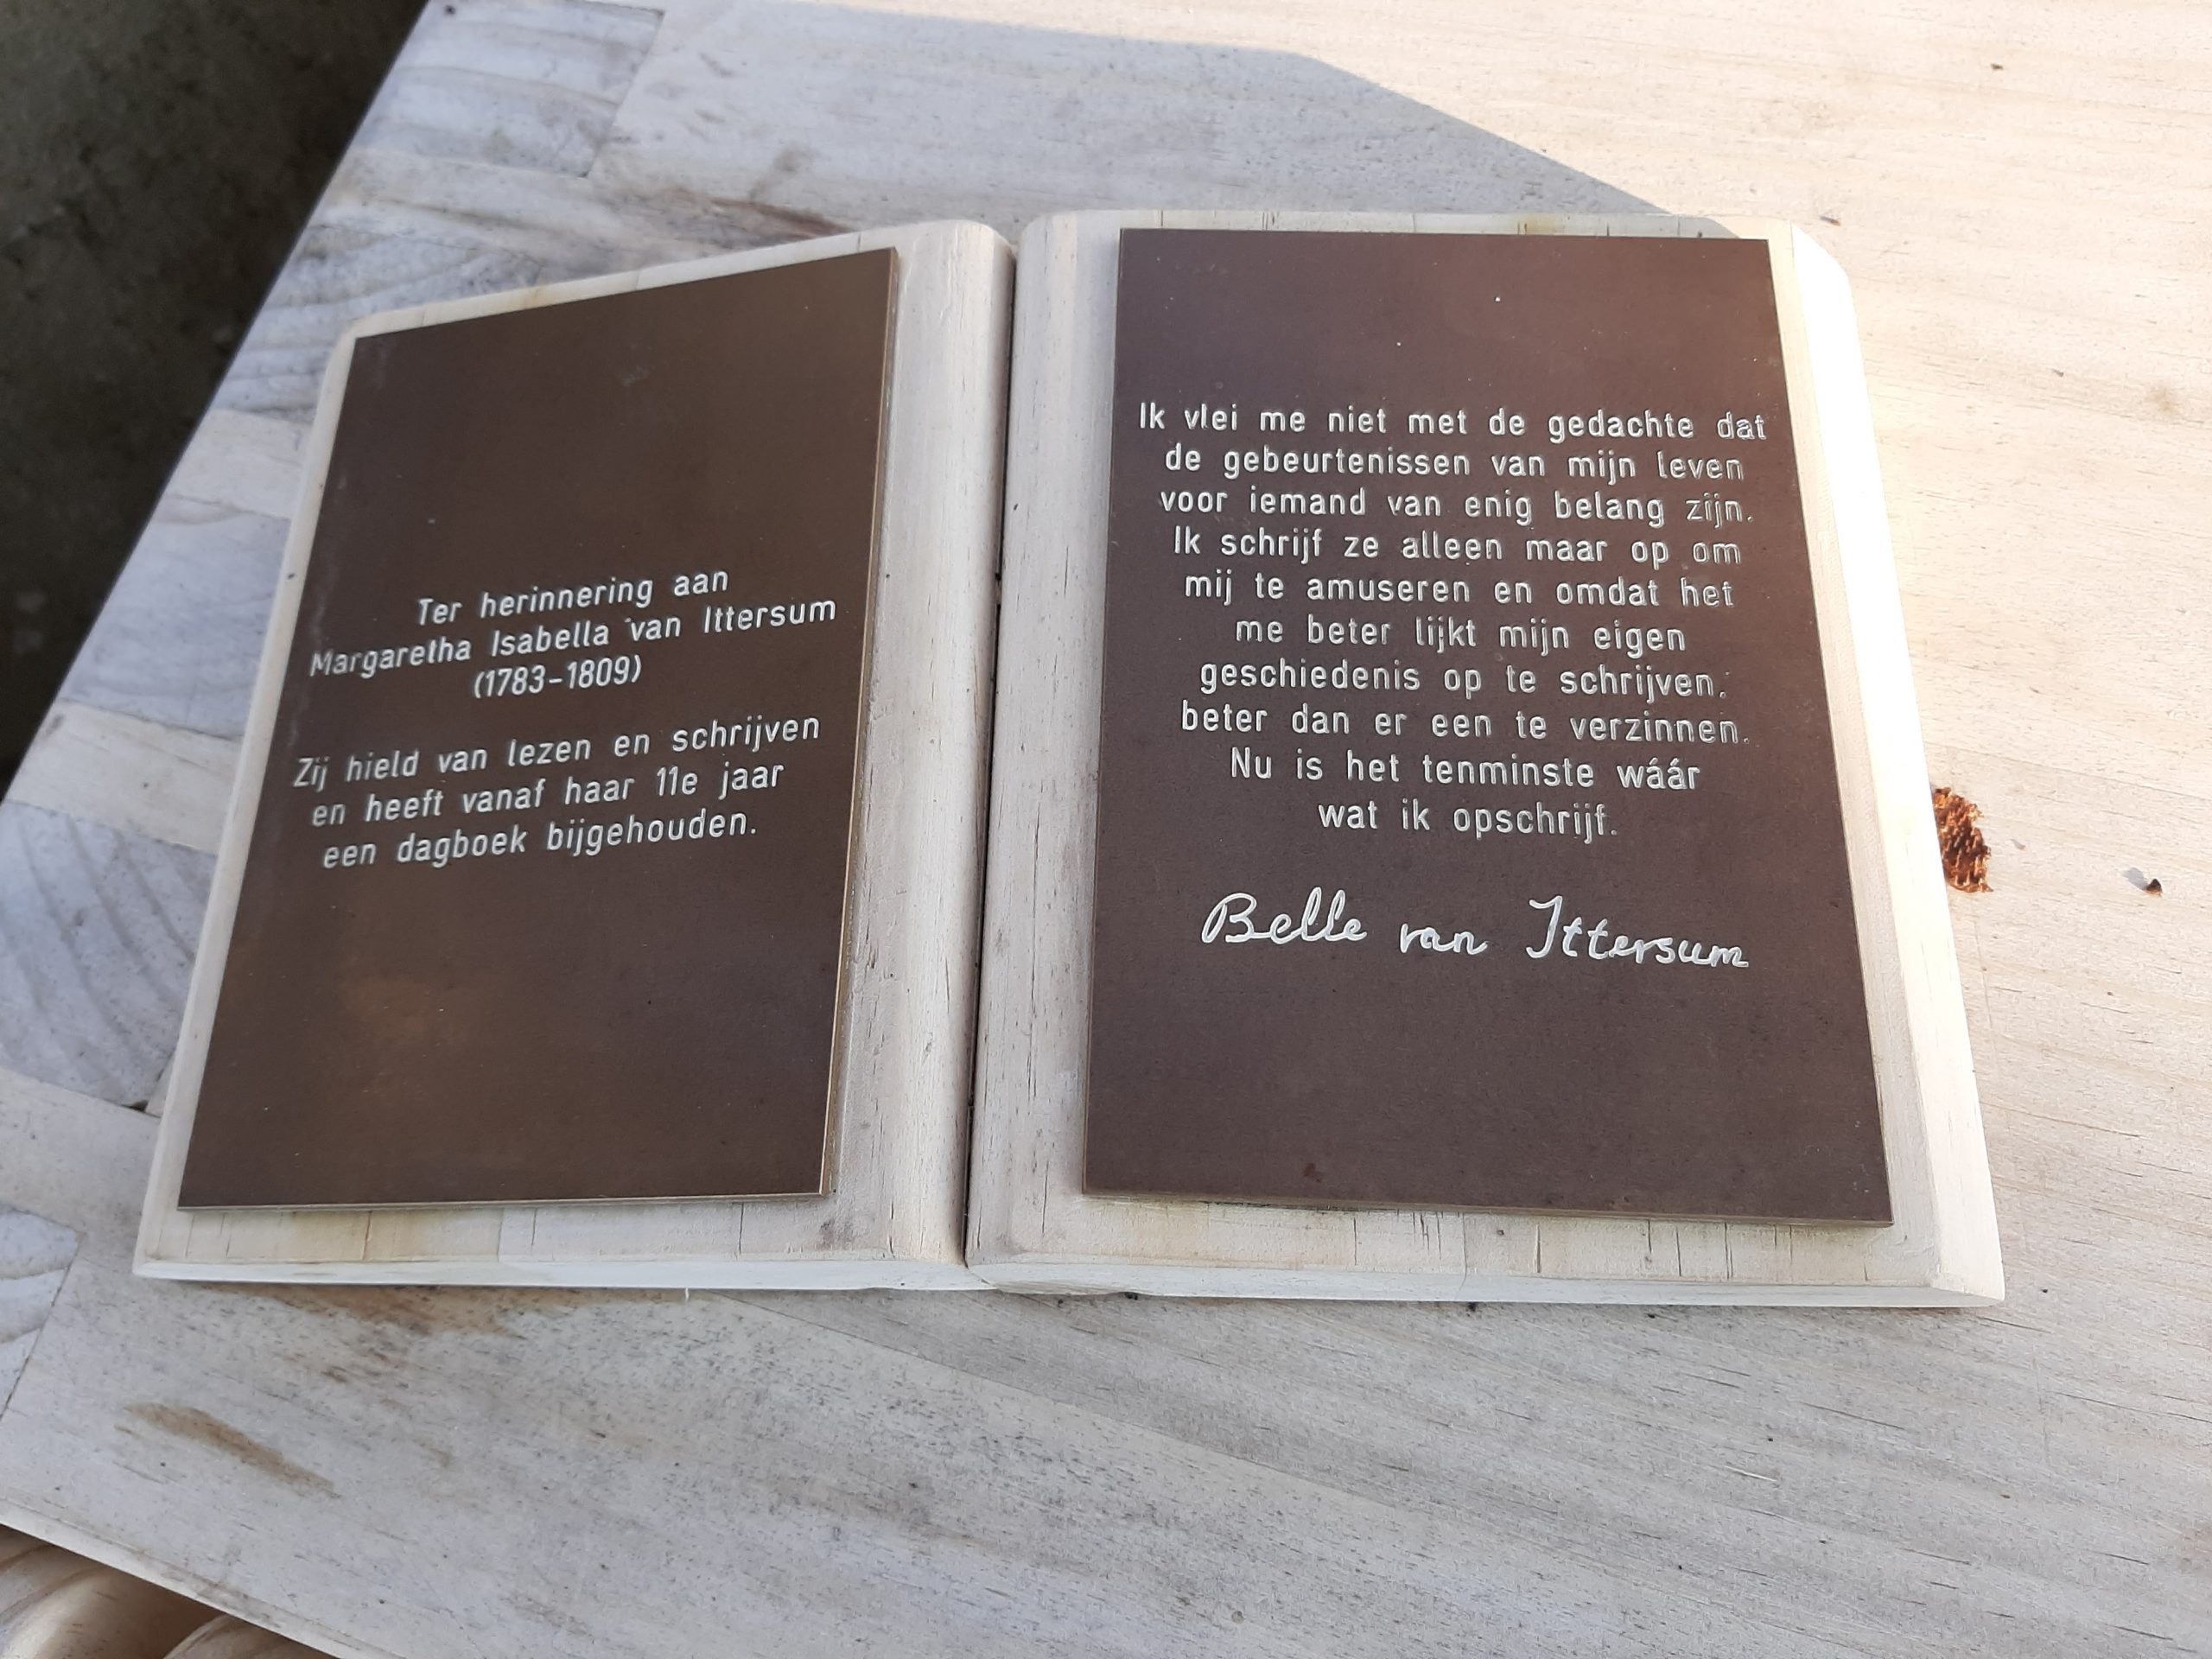 Ter herinnering aan
Margaretha Isabella van Ittersum
(1783-1809)
Zij hield van lezen en schrijven
en heeft vanaf haar 11e jaar
een dagboek bijgehouden.
Ik vlei me niet met de gedachte dat
de gebeurtenissen van mijn leven
voor iemand van enig belang zijn.
Ik schrijf ze alleen maar op om
mij te amuseren en omdat het
me beter lijkt mijn eigen
geschiedenis op te schrijven.
beter dan er een te verzinnen.
Nu is het tenminste wáár
wat ik opschrijf.
Belle van Ittersum